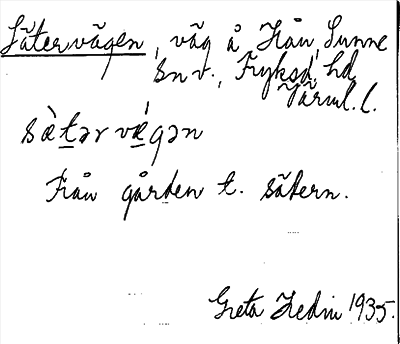 Sätervägen, väg å Från, Sunne
sn v., Fryksd. hd
Värml. l.
sæ̀tər vǽgən
Från gården t. sätern.
Greta Hedin 1935.